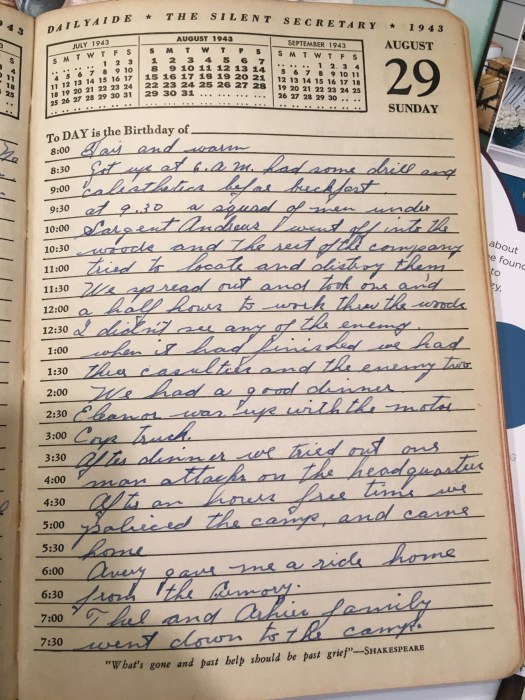 DAILYAIDE ★ THE SILENT SECRETARY ★ 1943
JULY 1943
S M T W T F S
1 2 3
4 5 6 7 8 9 10
11 12 13 14 15 16 17
18 19 20 21 22 23 24
25 26 27 28 29 30 31
AUGUST 1943
S M T W T F S
1 2 3 4 5 6 7
8 9 10 11 12 13 14
15 16 17 18 19 20 21
22 23 24 25 26 27 28
29 30 31
SEPTEMBER 1943
S M T W T F S
1 2 3 4
5 6 7 8 9 10 11
12 13 14 15 16 17 18
19 20 21 22 23 24 25
26 27 28 29 30
AUGUST
29
SUNDAY
To DAY is the Birthday of
8:00 Fair and warm
8:30 Got up at 6. a.m. had some drill and
9:00 calisthetics befor breckfast
9:30 at 9.30 a squad of men under
10:00 Sargent Andrews went off into the
10:30 woods and the rest of the company
11:00 tried to locate and distroy them
11:30 We spread out and took one and
12:00 a half hours to work threw the woods
12:30 I didn't see any of the enemy.
1:00 when it had finished we had
1:30 three casulties and the enemy two
2:00 We had a good dinner
2:30 Eleanor was up with the motor
3:00 Corp truck.
3:30 After dinner we tried out one
4:00 man attacks on the headquarters
4:30 After an hours free time we
5:00 policed the camp, and came
5:30 home
6:00 Avery gave me a ride home
6:30 from the Armory.
7:00 Thel and family
7:30 went down to the camp.
"What's gone and past help should be past grief"—SHAKESPEARE
about
to